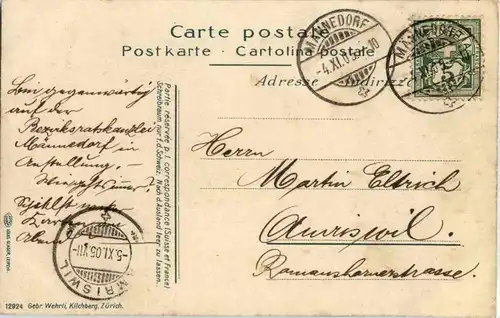 Carte postale
Postkarte - Cartolina postale
Adresse
MÄNNEDORF
-4.XI.05.
MÄNNEDORF
Bin gegenwärtig
auf der
Bezirksratskanzlei
Männedorf in
Anstellung. -
Partie réservée p. l. correspondance (Suisse et France)
Schreibraum, nur f. d. Schweiz. Nach d. Ausland leer zu lassen.
Herrn
Martin
Amriswil.
Romanshornerstrasse.
AMRISWIL
-5.XI.05.VII-
12924 Gebr. Wehrli, Kilchberg, Zürich.